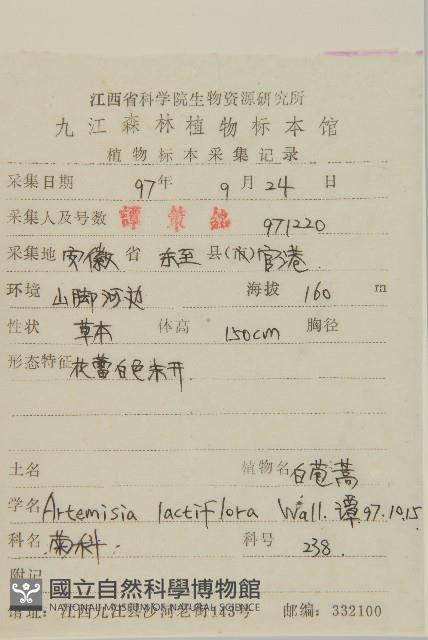 江西省科学院生物资源研究所
九江森林植物标本馆
植物标本采集记录
采集日期 97年 9月 24 日
采集人及号数 譚策銘 971220
采集地 安徽 省 东至 县(市) 官港
环境 山脚河边 海拔 160 m
性状 草本 体高 150cm 胸径
形态特征 花蕾白色未开
土名 植物名 白苞蒿
学名 Artemisia lactiflora Wall. 谭97.10.15
科名 菊科. 科号 238.
附记
國立自然科學博物館
NATIONAL MUSEUM OF NATURAL SCIENCE
馆址: 江西九江县沙河老街143号 邮编: 332100